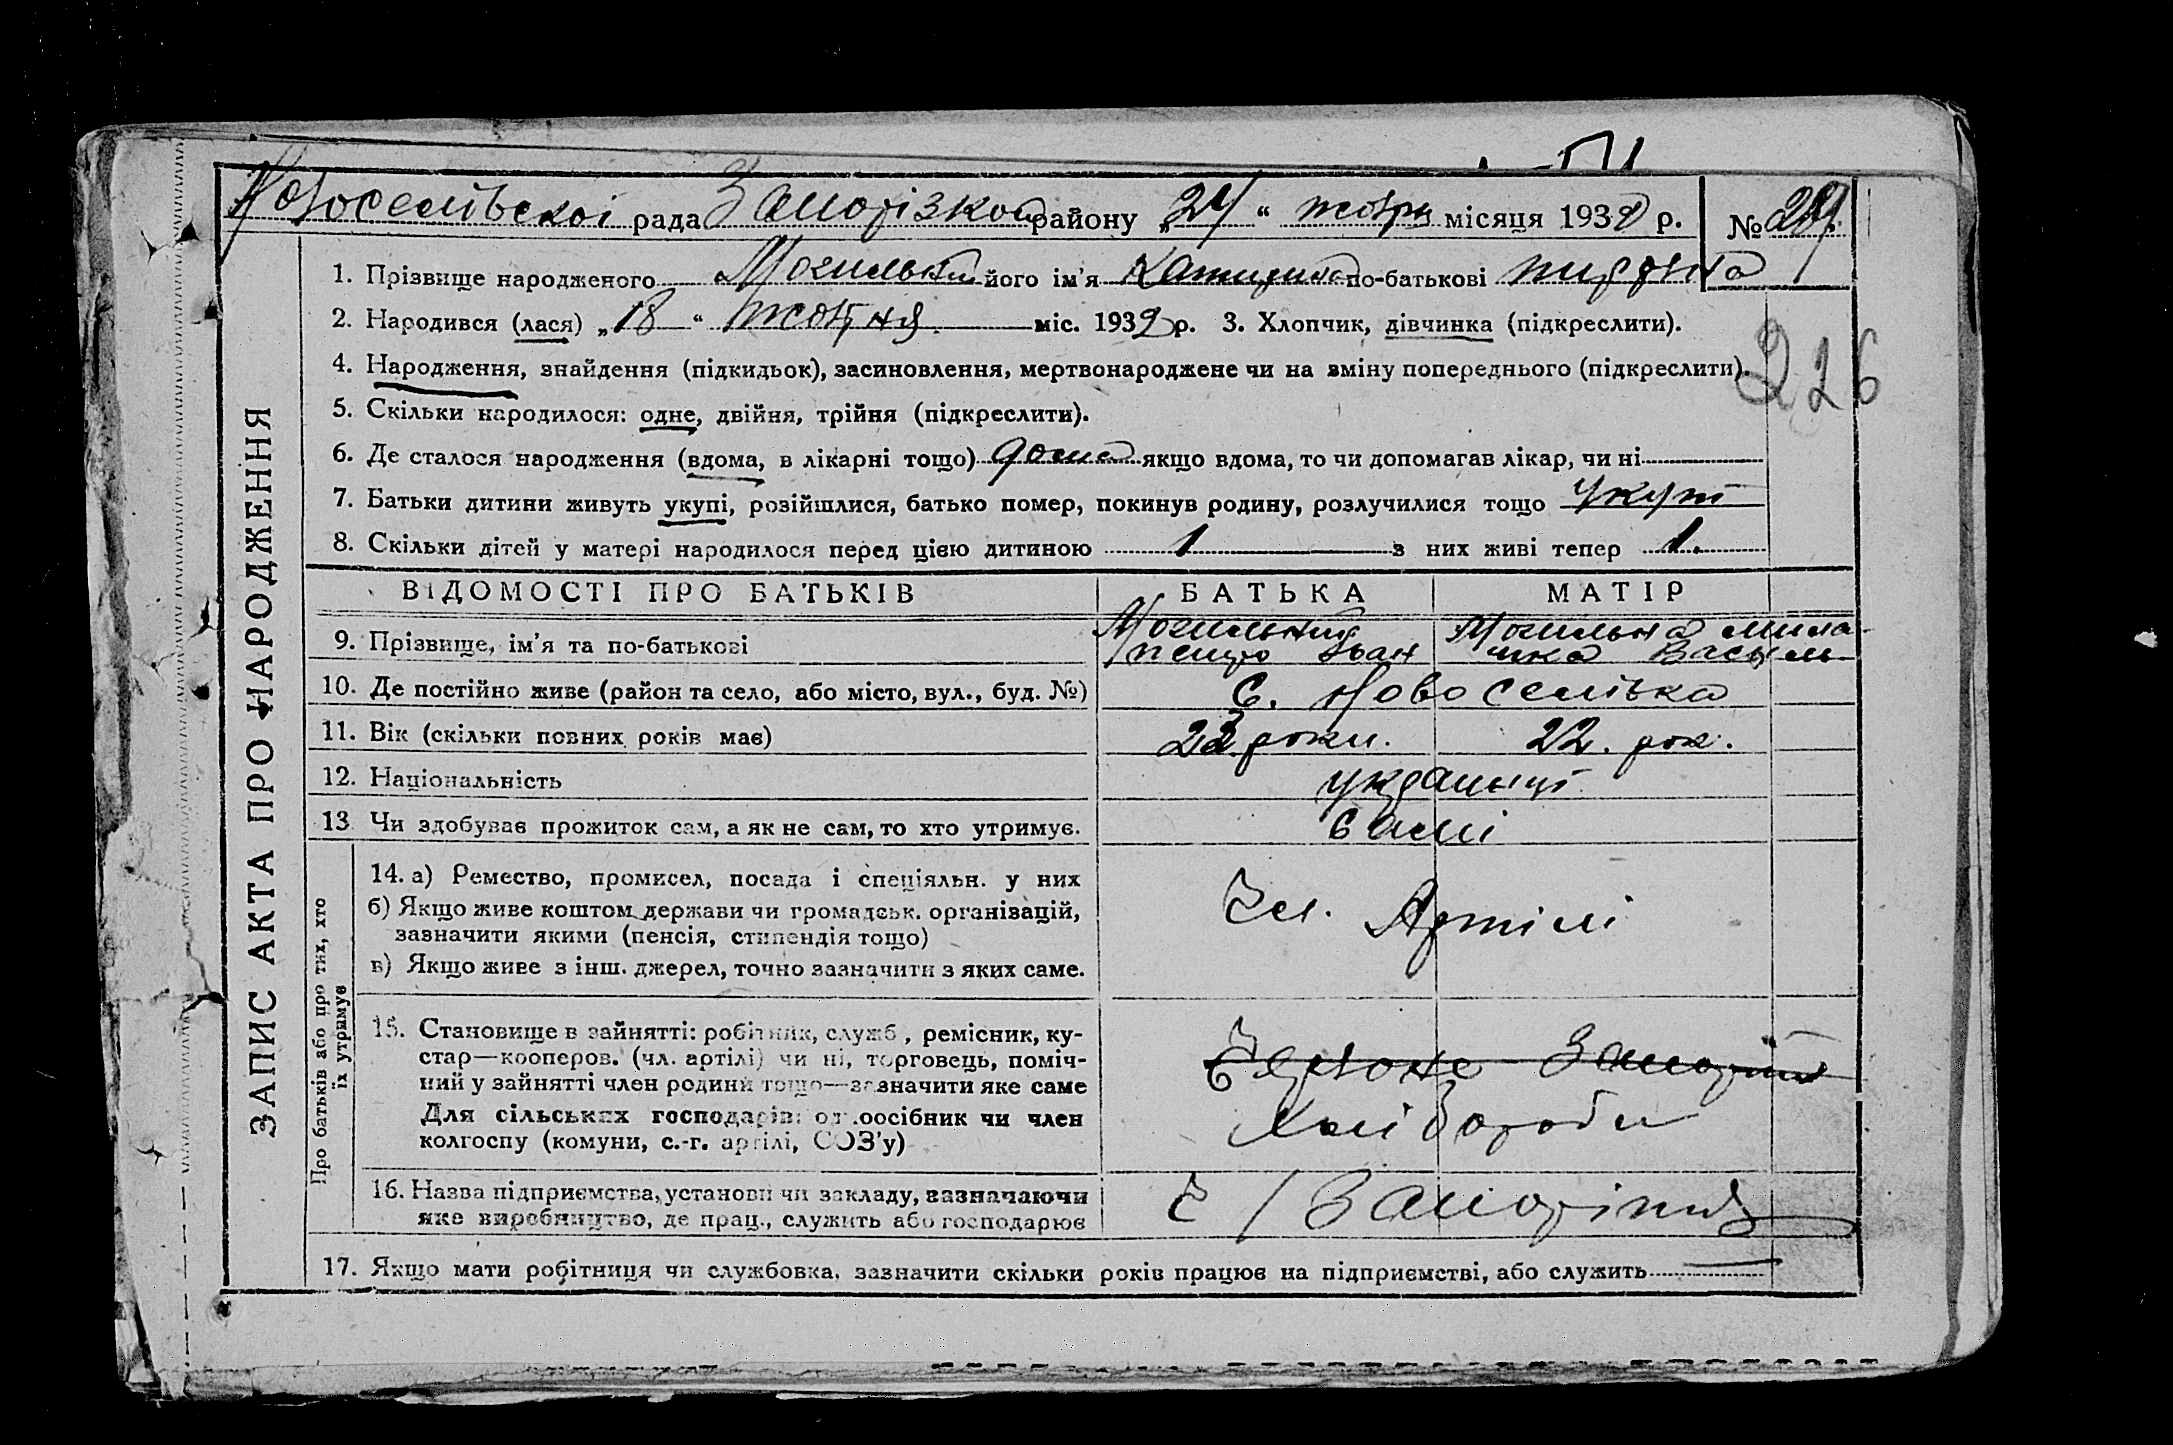 Новоселівської рада Запорізком району „24“ жовтн місяця 1932 р. №
1. Прізвище народженого Могильний його ім'я Катирина по-батькові
2. Народився (лася) „18“ жовтня міс. 1932 р. 3. Хлопчик, дівчинка (підкреслити).
226
4. Народження, знайдення (підкидьок), засиновлення, мертвонароджене чи на зміну попереднього (підкреслити).
5. Скільки народилося: одне, двійня, трійня (підкреслити).
6. Де сталося народження (вдома, в лікарні тощо) дома якщо вдома, то чи допомагав лікар, чи ні
7. Батьки дитини живуть укупі, розійшлися, батько помер, покинув родину, розлучилися тощо укупі
8. Скільки дітей у матері народилося перед цією дитиною 1 з них живі тепер 1.
ЗАПИС АКТА ПРО НАРОДЖЕННЯ
ВІДОМОСТІ ПРО БАТЬКІВ БАТЬКА МАТІР
9. Прізвище, ім'я та по-батькові Могильний Іван Могильна Васыль
10. Де постійно живе (район та село, або місто, вул., буд. №) С. Новоселівка
11. Вік (скільки повних років має) 23 роки. 22. рок.
12. Національність украиньці
13 Чи здобував прожиток сам, а як не сам, то хто утримує. самі
Про батьків або про тих, хто
їх утримує
14. а) Ремество, промисел, посада і спеціяльн. у них
б) Якщо живе коштом держави чи громадськ. організацій,
зазначити якими (пенсія, стипендія тощо)
в) Якщо живе з інш. джерел, точно зазначити з яких саме.
Чл. Артілі
15. Становище в зайнятті: робітник, служб., ремісник, ку-
стар—кооперов. (чл. артілі) чи ні, торговець, поміч-
ний у зайнятті член родини тощо—зазначити яке саме
Для сільських господарів: одноосібник чи член
колгоспу (комуни, с.-г. артілі, СОЗ'у)
Хліборобы
16. Назва підприємства, установи чи закладу, зазначаючи
яке виробництво, де прац., служить або господарює
Ч/Запоріжя
17. Якщо мати робітниця чи службовка, зазначити скільки років працює на підприємстві, або служить